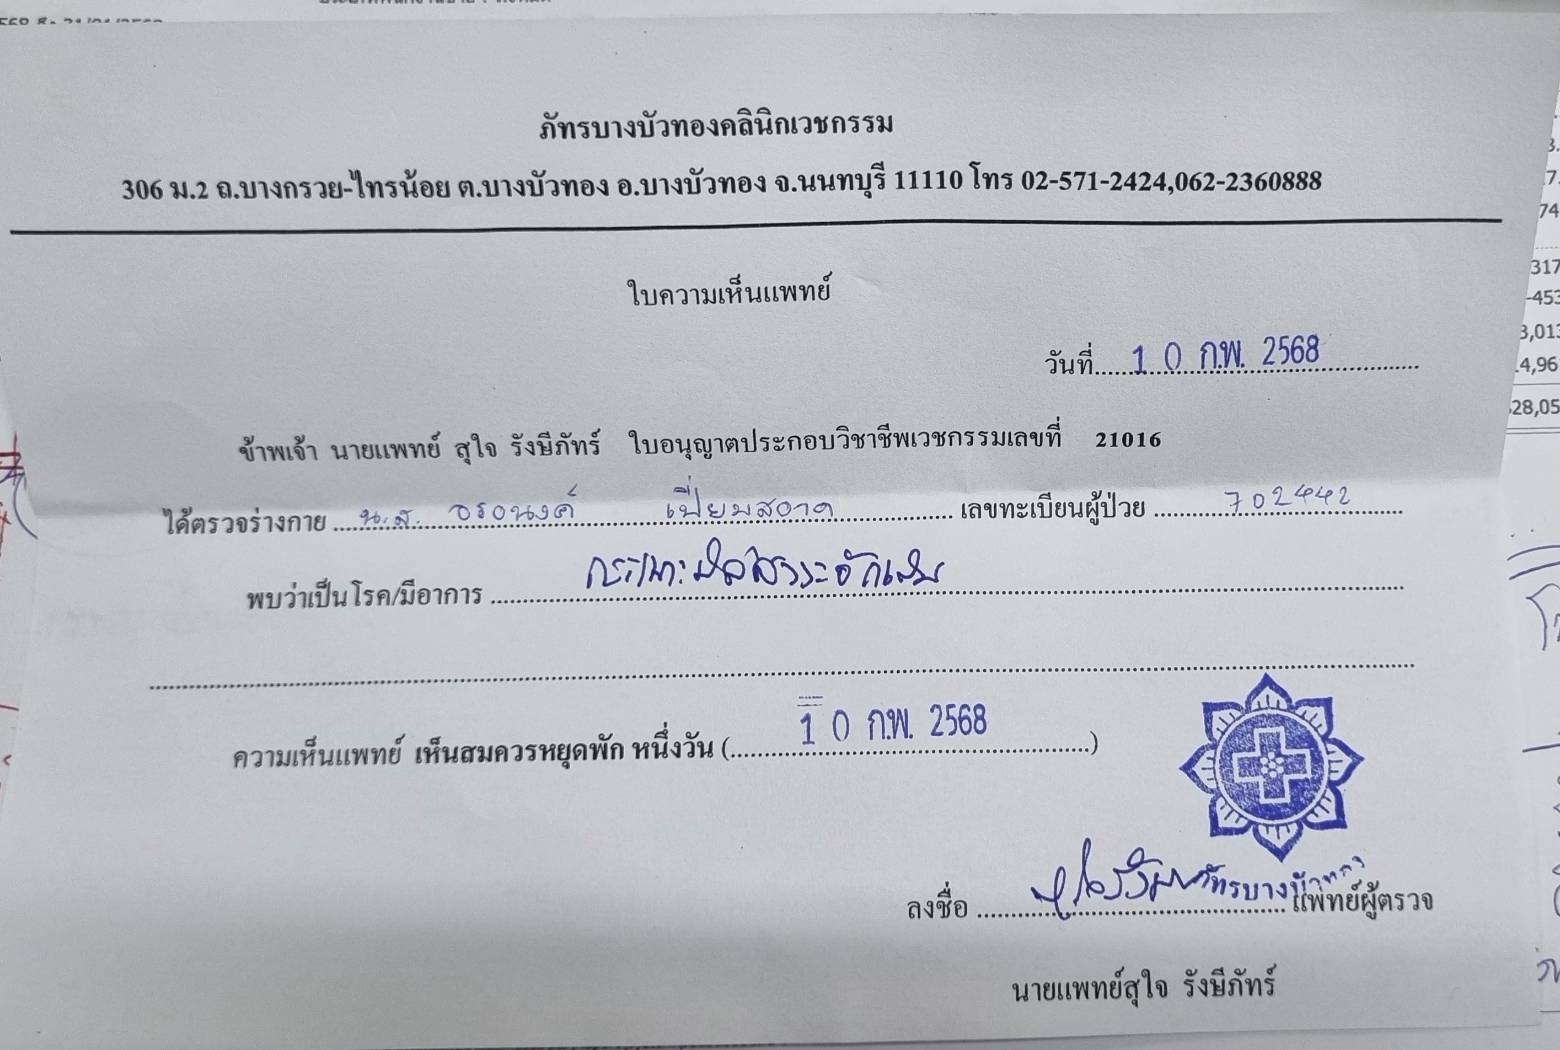 ภัทรบางบัวทองคลินิกเวชกรรม
306 ม.2 ถ.บางกรวย-ไทรน้อย ต.บางบัวทอง อ.บางบัวทอง จ.นนทบุรี 11110 โทร 02-571-2424,062-2360888
ใบความเห็นแพทย์
วันที่ 10 ก.พ. 2568
ข้าพเจ้า นายแพทย์ สุใจ รังษีภัทร์ ใบอนุญาตประกอบวิชาชีพเวชกรรมเลขที่ 21016
ได้ตรวจร่างกาย น.ส. อรอนงค์ เปี่ยมสอาด เลขทะเบียนผู้ป่วย 702442
พบว่าเป็นโรค/มีอาการ กระเพาะปัสสาวะอักเสบ
ความเห็นแพทย์ เห็นสมควรหยุดพัก หนึ่งวัน (10 ก.พ. 2568)
ภัทรบางบัวทอง
ลงชื่อ แพทย์ผู้ตรวจ
นายแพทย์สุใจ รังษีภัทร์
317
-453
28,05